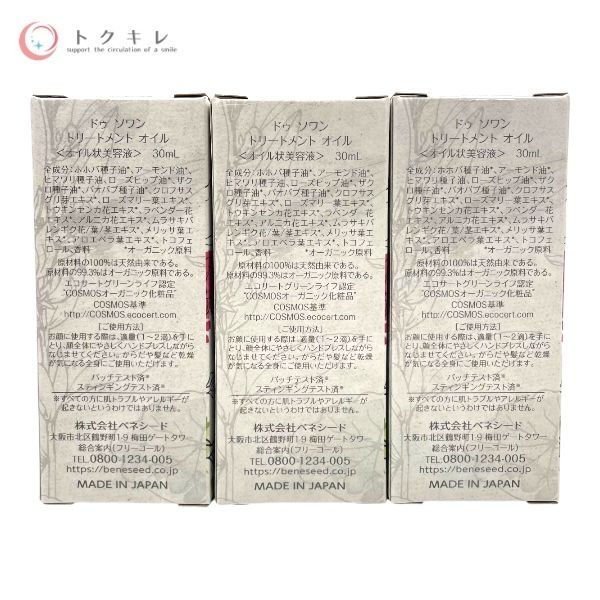 トクキレ
support the circulation of a smile
ドゥ ソワン
トリートメント オイル
<オイル状美容液> 30mL
全成分:ホホバ種子油、アーモンド油*、
ヒマワリ種子油、ローズヒップ油*、ザク
ロ種子油*、バオバブ種子油*、クロフサス
グリ芽エキス*、ローズマリー葉エキス*、
トウキンセンカ花エキス*、ラベンダー花
エキス*、アルニカ花エキス*、ムラサキバ
レンギク花/葉/茎エキス*、メリッサ葉エ
キス*、アロエベラ葉エキス*、トコフェ
ロール、香料 *オーガニック原料
原材料の100%は天然由来である。
原材料の99.3%はオーガニック原料である。
エコサートグリーンライフ認定
"COSMOSオーガニック化粧品"
COSMOS基準
http://COSMOS.ecocert.com
【ご使用方法】
お顔に使用する際は、適量(1~2滴)を手に
とり、顔全体にやさしくハンドプレスしながら
なじませてください。からだや髪など乾燥
が気になる全身にご使用いただけます。
パッチテスト済*
スティンギングテスト済*
*すべての方に肌トラブルやアレルギーが
起きないというわけではありません。
株式会社ベネシード
大阪市北区鶴野町1-9 梅田ゲートタワー
総合案内(フリーコール)
TEL.0800-1234-005
https://beneseed.co.jp
MADE IN JAPAN
ドゥ ソワン
トリートメント オイル
<オイル状美容液> 30mL
全成分:ホホバ種子油、アーモンド油*、
ヒマワリ種子油、ローズヒップ油*、ザク
ロ種子油*、バオバブ種子油*、クロフサス
グリ芽エキス*、ローズマリー葉エキス*、
トウキンセンカ花エキス*、ラベンダー花
エキス*、アルニカ花エキス*、ムラサキバ
レンギク花/葉/茎エキス*、メリッサ葉エ
キス*、アロエベラ葉エキス*、トコフェ
ロール、香料 *オーガニック原料
原材料の100%は天然由来である。
原材料の99.3%はオーガニック原料である。
エコサートグリーンライフ認定
"COSMOSオーガニック化粧品"
COSMOS基準
http://COSMOS.ecocert.com
【ご使用方法】
お顔に使用する際は、適量(1~2滴)を手に
とり、顔全体にやさしくハンドプレスしながら
なじませてください。からだや髪など乾燥
が気になる全身にご使用いただけます。
パッチテスト済*
スティンギングテスト済*
*すべての方に肌トラブルやアレルギーが
起きないというわけではありません。
株式会社ベネシード
大阪市北区鶴野町1-9 梅田ゲートタワー
総合案内(フリーコール)
TEL.0800-1234-005
https://beneseed.co.jp
MADE IN JAPAN
ドゥ ソワン
トリートメント オイル
<オイル状美容液> 30mL
全成分:ホホバ種子油、アーモンド油*、
ヒマワリ種子油、ローズヒップ油*、ザク
ロ種子油*、バオバブ種子油*、クロフサス
グリ芽エキス*、ローズマリー葉エキス*、
トウキンセンカ花エキス*、ラベンダー花
エキス*、アルニカ花エキス*、ムラサキバ
レンギク花/葉/茎エキス*、メリッサ葉エ
キス*、アロエベラ葉エキス*、トコフェ
ロール、香料 *オーガニック原料
原材料の100%は天然由来である。
原材料の99.3%はオーガニック原料である。
エコサートグリーンライフ認定
"COSMOSオーガニック化粧品"
COSMOS基準
http://COSMOS.ecocert.com
【ご使用方法】
お顔に使用する際は、適量(1~2滴)を手に
とり、顔全体にやさしくハンドプレスしながら
なじませてください。からだや髪など乾燥
が気になる全身にご使用いただけます。
パッチテスト済*
スティンギングテスト済*
*すべての方に肌トラブルやアレルギーが
起きないというわけではありません。
株式会社ベネシード
大阪市北区鶴野町1-9 梅田ゲートタワー
総合案内(フリーコール)
TEL.0800-1234-005
https://beneseed.co.jp
MADE IN JAPAN